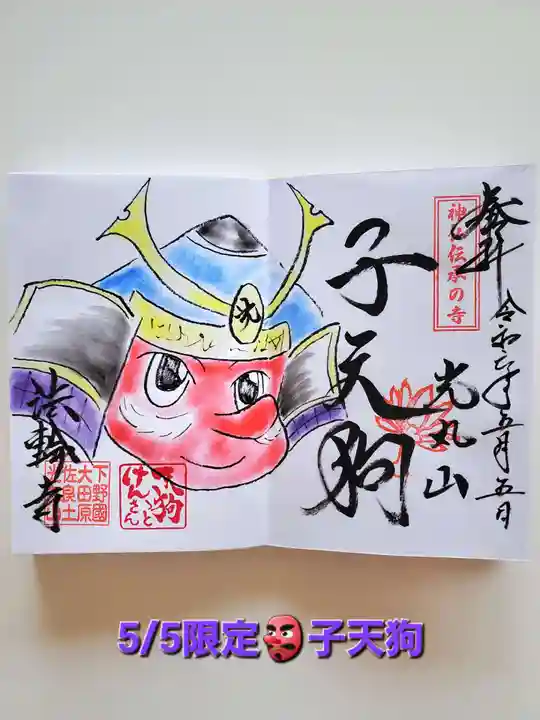 奉拝
令和六年五月五日
神仏伝承の寺
光丸山
子天狗
光
法輪寺
天狗
けんさん
下野國
大田原
佐良土
5/5限定👺子天狗